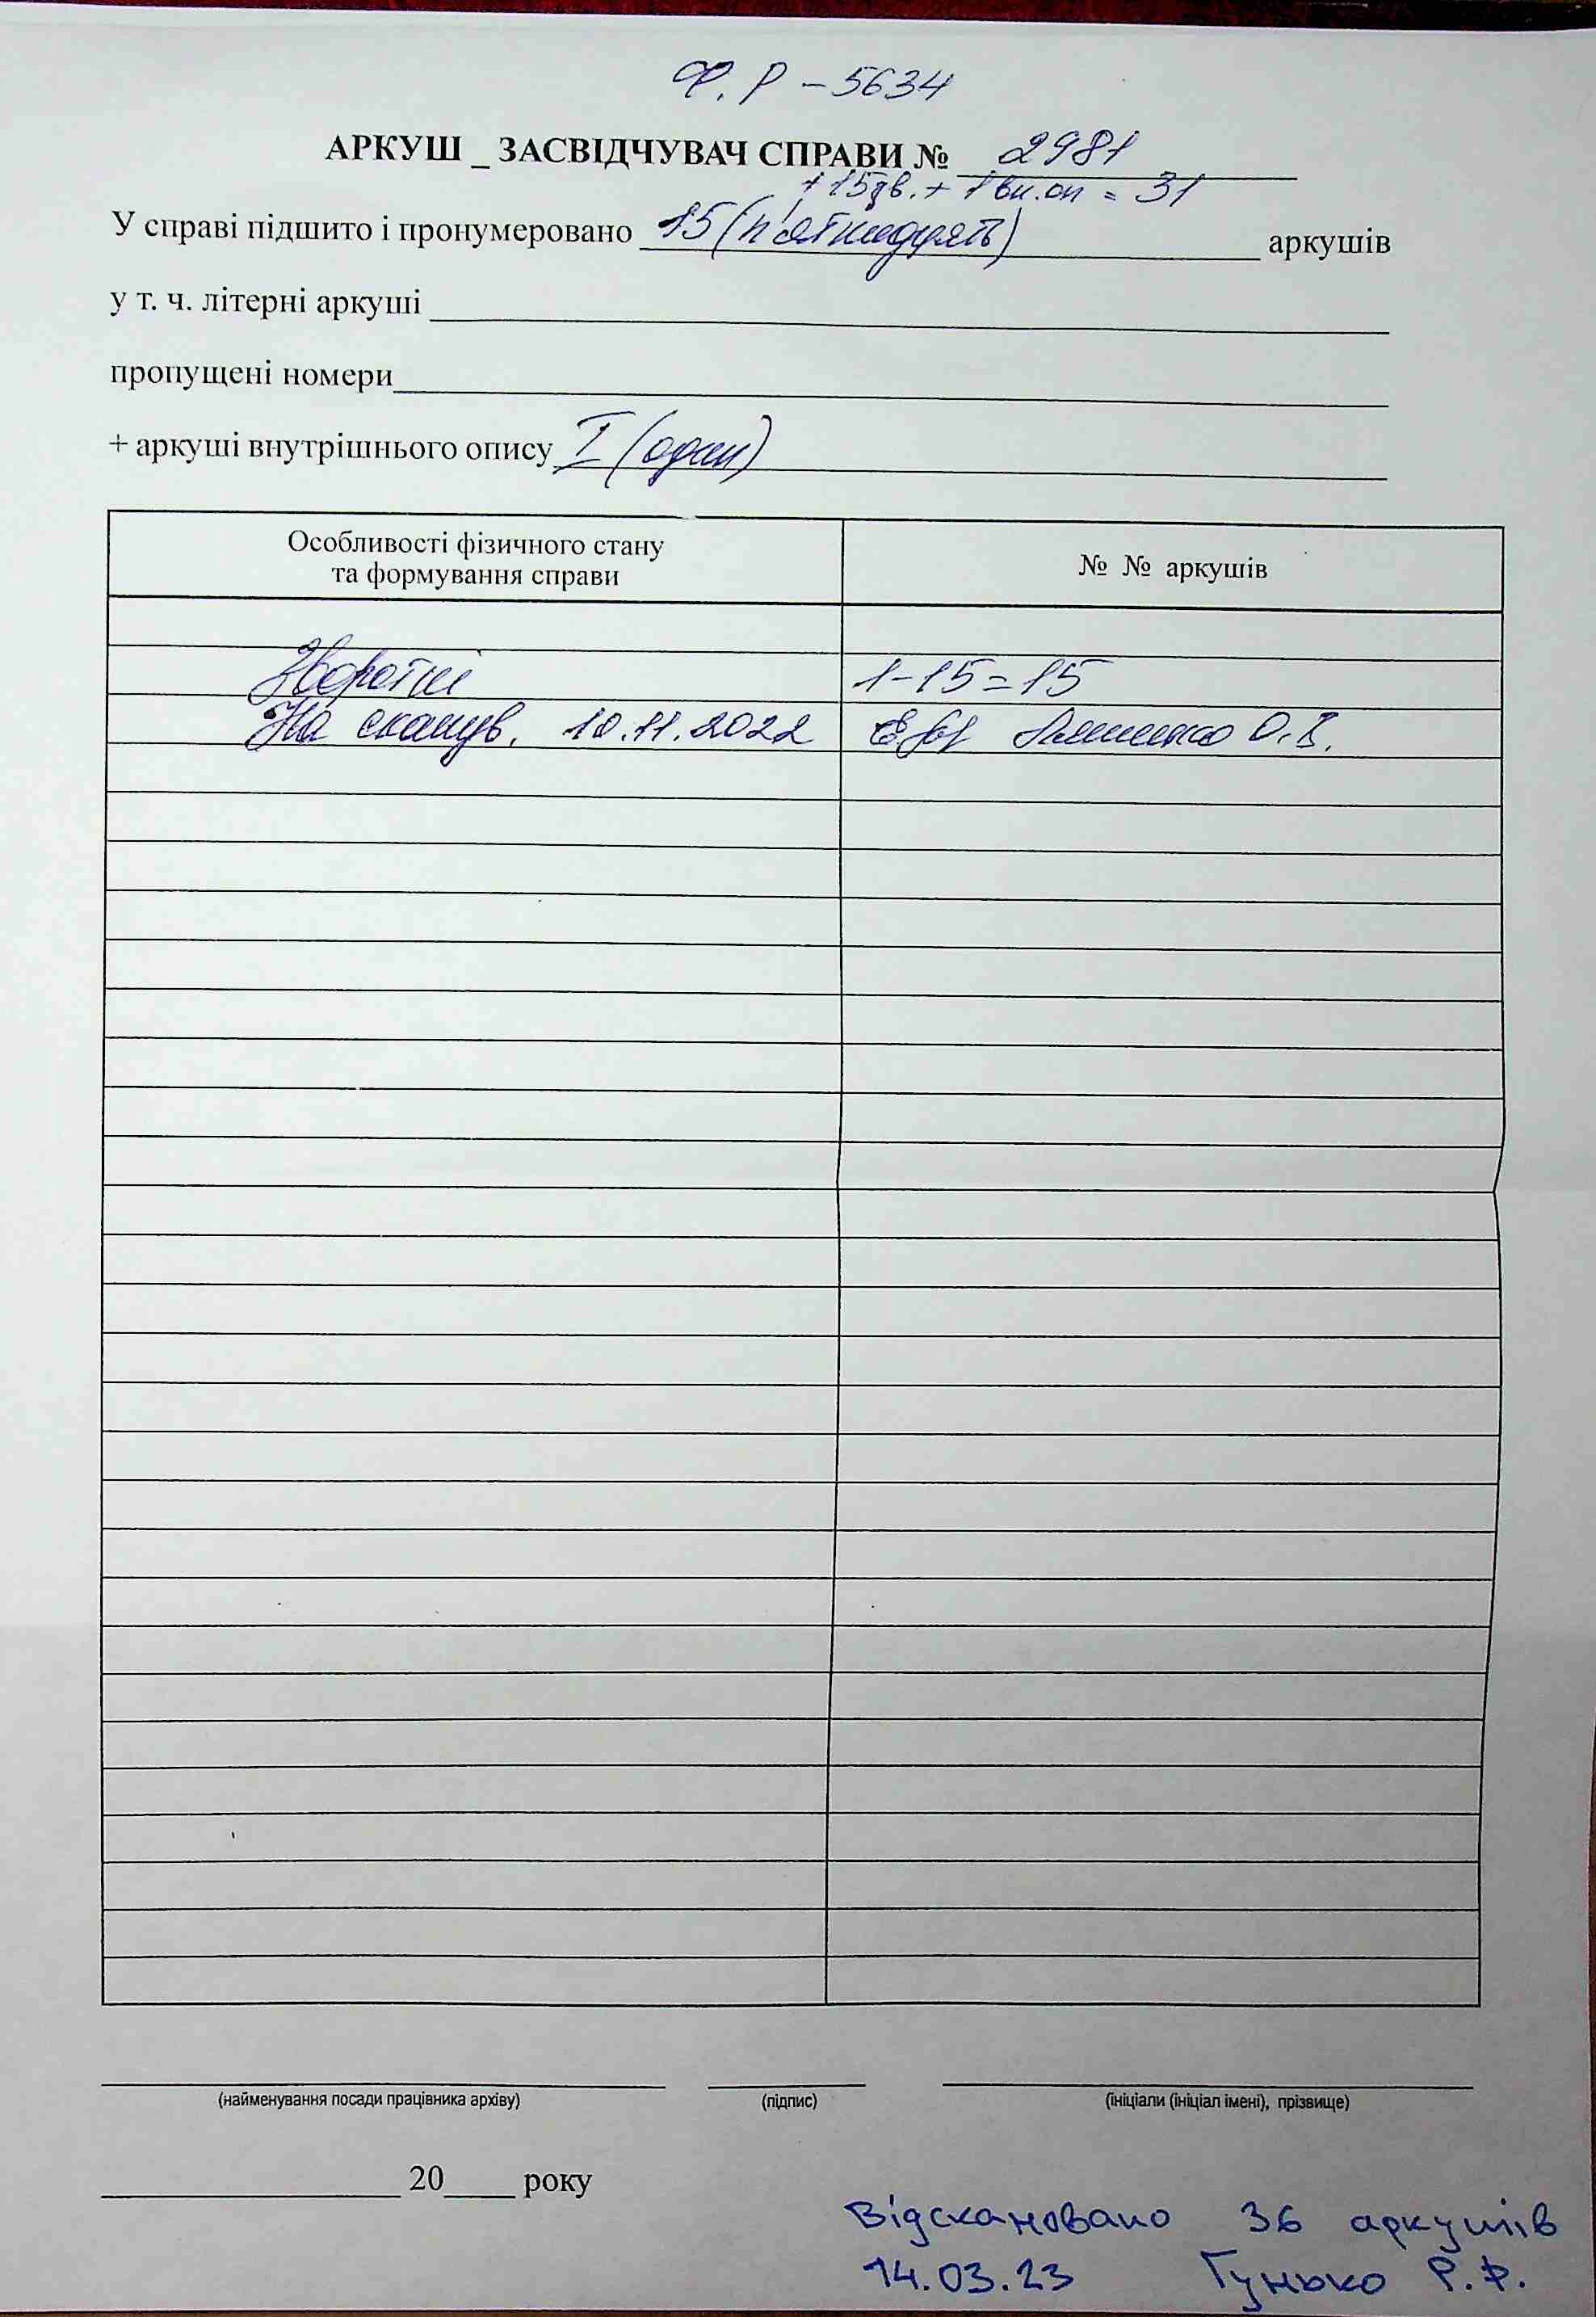 Ф. Р - 5634
АРКУШ _ ЗАСВІДЧУВАЧ СПРАВИ № 2981
+ 15зв. + 1 вн.оп = 31
У справі підшито і пронумеровано 15 (п'ятнадцять) аркушів
у т. ч. літерні аркуші
пропущені номери
+ аркуші внутрішнього опису I (один)
Особливості фізичного стану
та формування справи
№ № аркушів
Зворотні 1-15=15
На сканув. 10.11.2022 О.В.
(найменування посади працівника архіву) (підпис) (ініціали (ініціал імені), прізвище)
20 року
Відскановано 36 аркушів
14.03.23 Гунько Р.Ф.